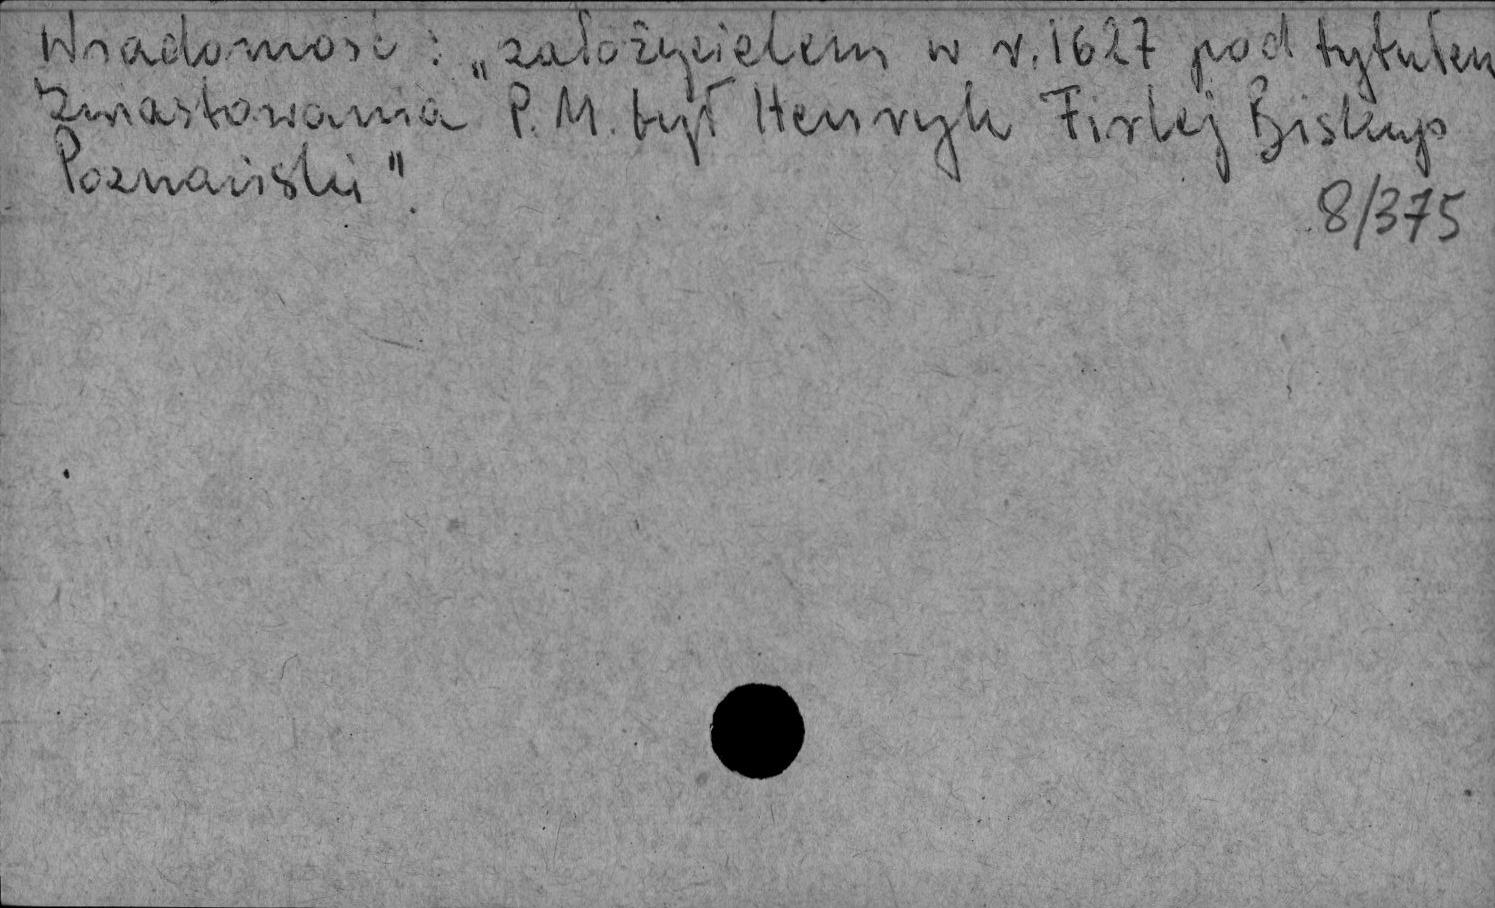 Wiadomość : „założycielem w r. 1627 pod tytułem
Zwiastowania P. M. był Henryk Firlej Biskup
Poznański".
8/375